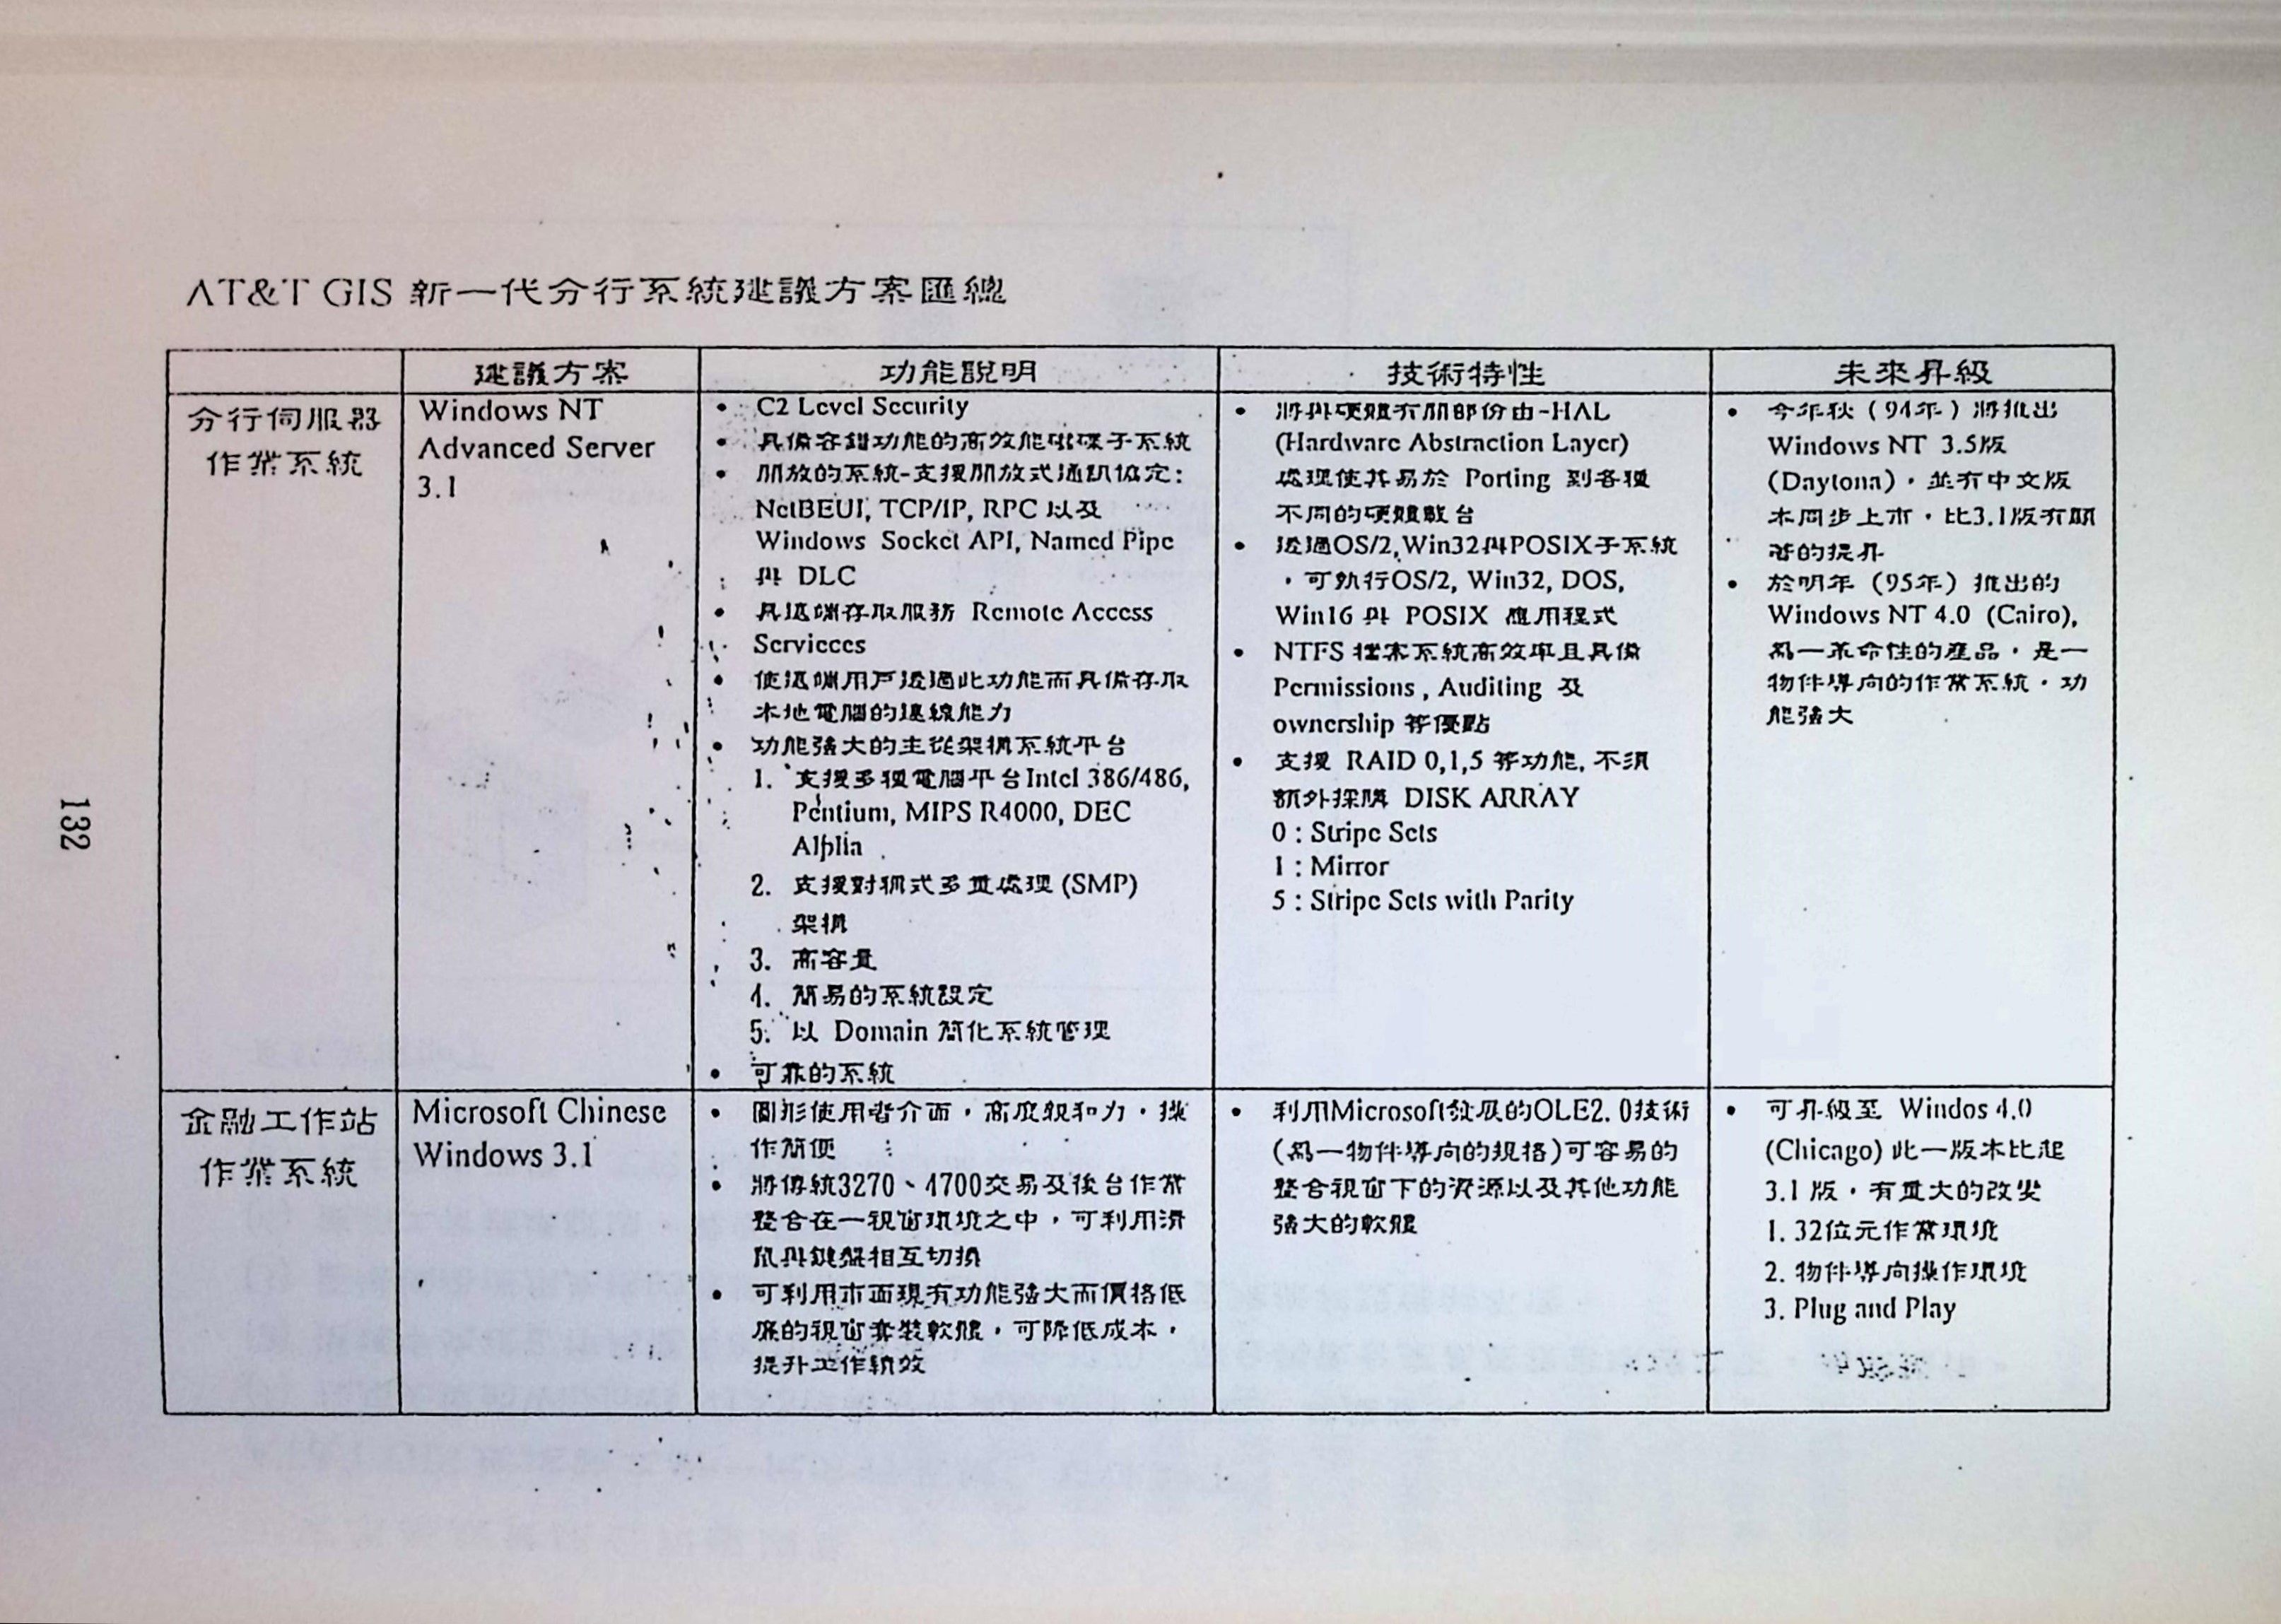 AT&T GIS 新一代分行系統建議方案匯總
建議方案
功能說明
技術特性
未來昇級
分行伺服器
作業系統
Windows NT
Advanced Server
3.1
• C2 Level Security
• 具備容錯功能的高效能磁碟子系統
• 開放的系統-支援開放式通訊協定:
NetBEUI, TCP/IP, RPC 以及
Windows Socket API, Named Pipe
與 DLC
• 具遠端存取服務 Remote Access
Servicces
• 使遠端用戶透過此功能而具備存取
本地電腦的連線能力
• 功能強大的主從架構系統平台
1. 支援多種電腦平台Intel 386/486,
Pentium, MIPS R4000, DEC
Alphia
2. 支援對稱式多重處理 (SMP)
架構
3. 高容量
4. 簡易的系統設定
5. 以 Domain 簡化系統管理
• 可靠的系統
• 將與硬體有關部份由-HAL
(Hardware Abstraction Layer)
處理使其易於 Porting 到各種
不同的硬體敬台
• 透過OS/2,Win32與POSIX子系統
，可執行OS/2, Win32, DOS,
Win16 與 POSIX 應用程式
• NTFS 檔案系統高效率且具備
Permissions , Auditing 及
ownership 等優點
• 支援 RAID 0,1,5 等功能, 不須
額外採購 DISK ARRAY
0 : Stripe Sets
1 : Mirror
5 : Stripe Sets with Parity
• 今年秋 ( 94年 ) 將推出
Windows NT 3.5版
(Daytona)，並有中文版
本同步上市，比3.1版有顯
著的提昇
• 於明年 (95年) 推出的
Windows NT 4.0 (Cairo),
為一革命性的產品，是一
物件導向的作業系統，功
能強大
金融工作站
作業系統
Microsoft Chinese
Windows 3.1
• 圖形使用者介面，高度親和力，操
作簡便
• 將傳統3270、4700交易及後台作業
整合在一視窗環境之中，可利用滑
鼠與鍵盤相互切換
• 可利用市面現有功能強大而價格低
廉的視窗套裝軟體，可降低成本，
提升工作績效
• 利用Microsoft發展的OLE2.0技術
(為一物件導向的規格)可容易的
整合視窗下的資源以及其他功能
強大的軟體
• 可昇級至 Windos 4.0
(Chicago) 此一版本比起
3.1 版，有重大的改變
1. 32位元作業環境
2. 物件導向操作環境
3. Plug and Play
132